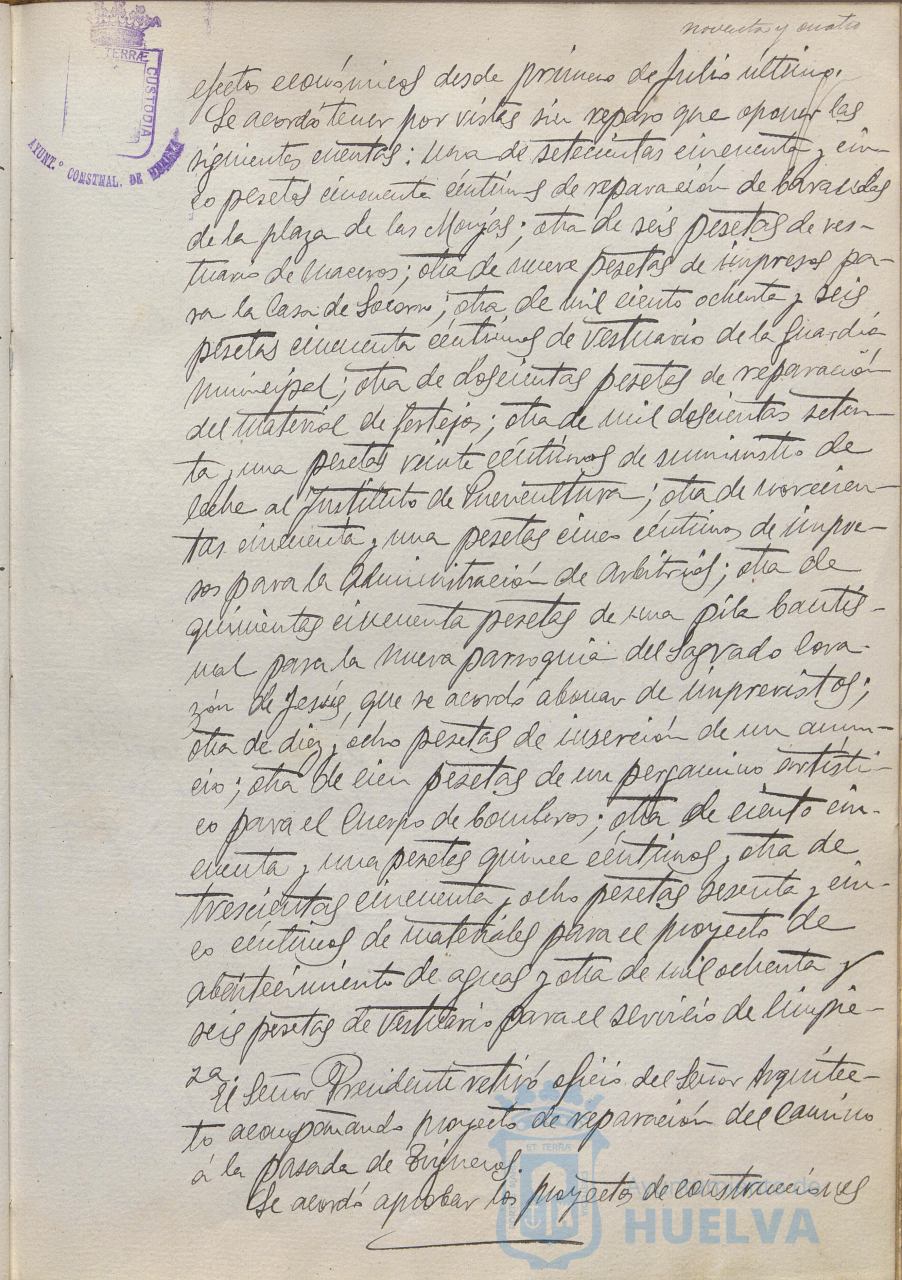 noventa y cuatro
TERRÆ CUSTODIA
AYUNT.º CONSTNAL. DE HUELVA
efectos económicos desde primero de Julio último.
Se acordó tener por vistas sin reparo que oponer las
siguientes cuentas: una de setecientas cincuenta y cin-
co pesetas cincuenta céntimos de reparación de barandas
de la plaza de las Monjas; otra de seis pesetas de ves-
tuario de maceros; otra de nueve pesetas de impresos pa-
ra la Casa de Socorro; otra de mil ciento ochenta y seis
pesetas cincuenta céntimos de vestuario de la Guardia
municipal; otra de doscientas pesetas de reparación
del material de festejos; otra de mil doscientas seten-
ta y una pesetas veinte céntimos de suministro de
leche al Instituto de Puericultura; otra de novecien-
tas cincuenta y una pesetas cinco céntimos de impre-
sos para la Administración de Arbitrios; otra de
quinientas cincuenta pesetas de una pila bautis-
mal para la nueva parroquia del Sagrado Cora-
zón de Jesús, que se acordó abonar de imprevistos;
otra de diez y ocho pesetas de inserción de un anun-
cio; otra de cien pesetas de un pergamino artísti-
co para el Cuerpo de bomberos; otra de ciento cin-
cuenta y una pesetas quince céntimos y otra de
trescientas cincuenta y ocho pesetas sesenta y cin-
co céntimos de materiales para el proyecto de
abastecimiento de aguas y otra de mil ochenta y
seis pesetas de vestuario para el servicio de limpie-
za.
El Señor Presidente retiró oficio del Señor Arquitec-
to acompañando proyecto de reparación del Camino
á la pasada de Trigueros.
Se acordó aprobar los proyectos de construcciones
ET TERRÆ
Ayuntamiento de
HUELVA